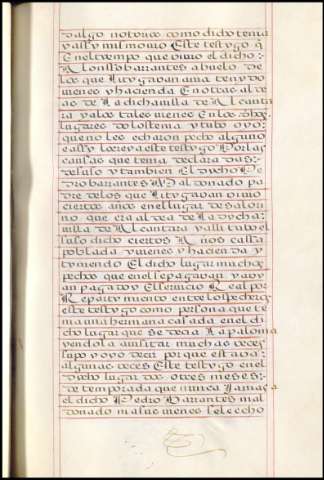 dalgo notorio como dicho tenia
y assy mismo vio este testygo q̃
En el tempo que vivio el dicho :
Alonsso barrantes abuelo de
los que litygavan avia tenydo
vienes y hacienda En otras alde
as de la dicha villa de Alcanta
ra y a los tales vienes En los dhos
lugares do los tenia y tubo oyo
que no les echaron pecho alguno
e assy lo creya este testygo Por las
causas que tenia declaradas :
desuso y tambien El dycho Pe
dro barrantes Maldonado pa
dre de los que lityigavan vivio
ciertos años en el lugar de salori
no que era aldea de la dycha :
villa de Alcantara y alli tubo el
suso dicho ciertos Años cassa
poblada y vienes y hacienda y
tyniendo El dicho lugar muchos
pechos que en el se pagavan y avy
an pagado y El servicio Real por
Repartymiento entre los pecheros
este testygo como persona que te
nia una hermana casada en el di
cho lugar que se decia La paloma
yendola a visitar muchas veces
supo y oyo decir porque estava :
algunas veces Este testygo en el
dicho lugar dos o tres meses :
de temporada que nunca Jamas a
el dicho Pedro Barrantes mal
donado ni a sus vienes se le echo